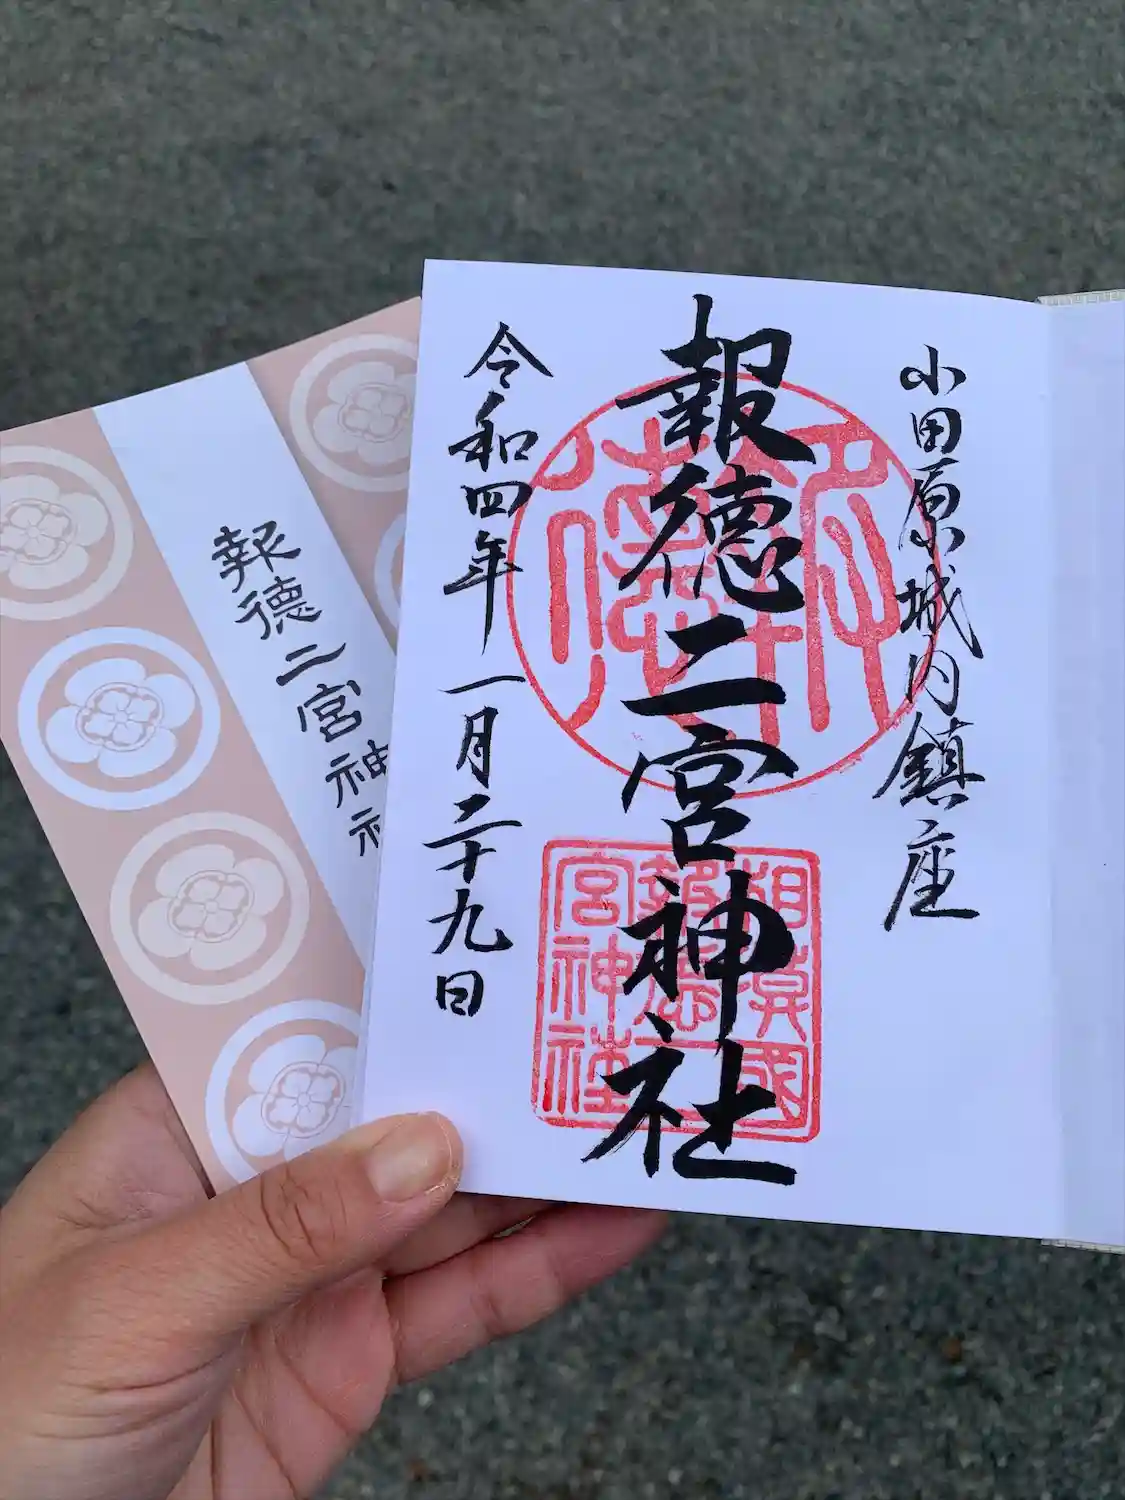 小田原城内鎮座
報徳二宮神社
令和四年一月二十九日
相模國
報徳二
宮神社
報徳二宮神社